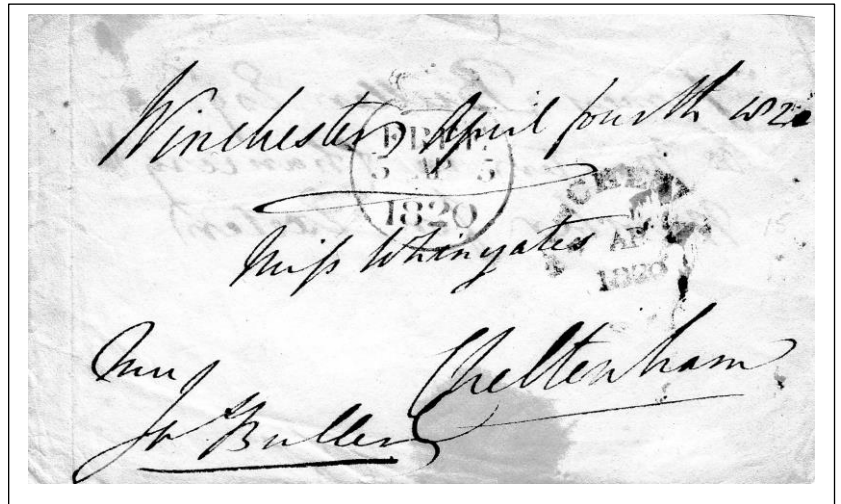 Winchester April fourth 1820
FREE
5 AP 5
1820
AP
1820
Miss Whinyates
Cheltenham
Jn Buller